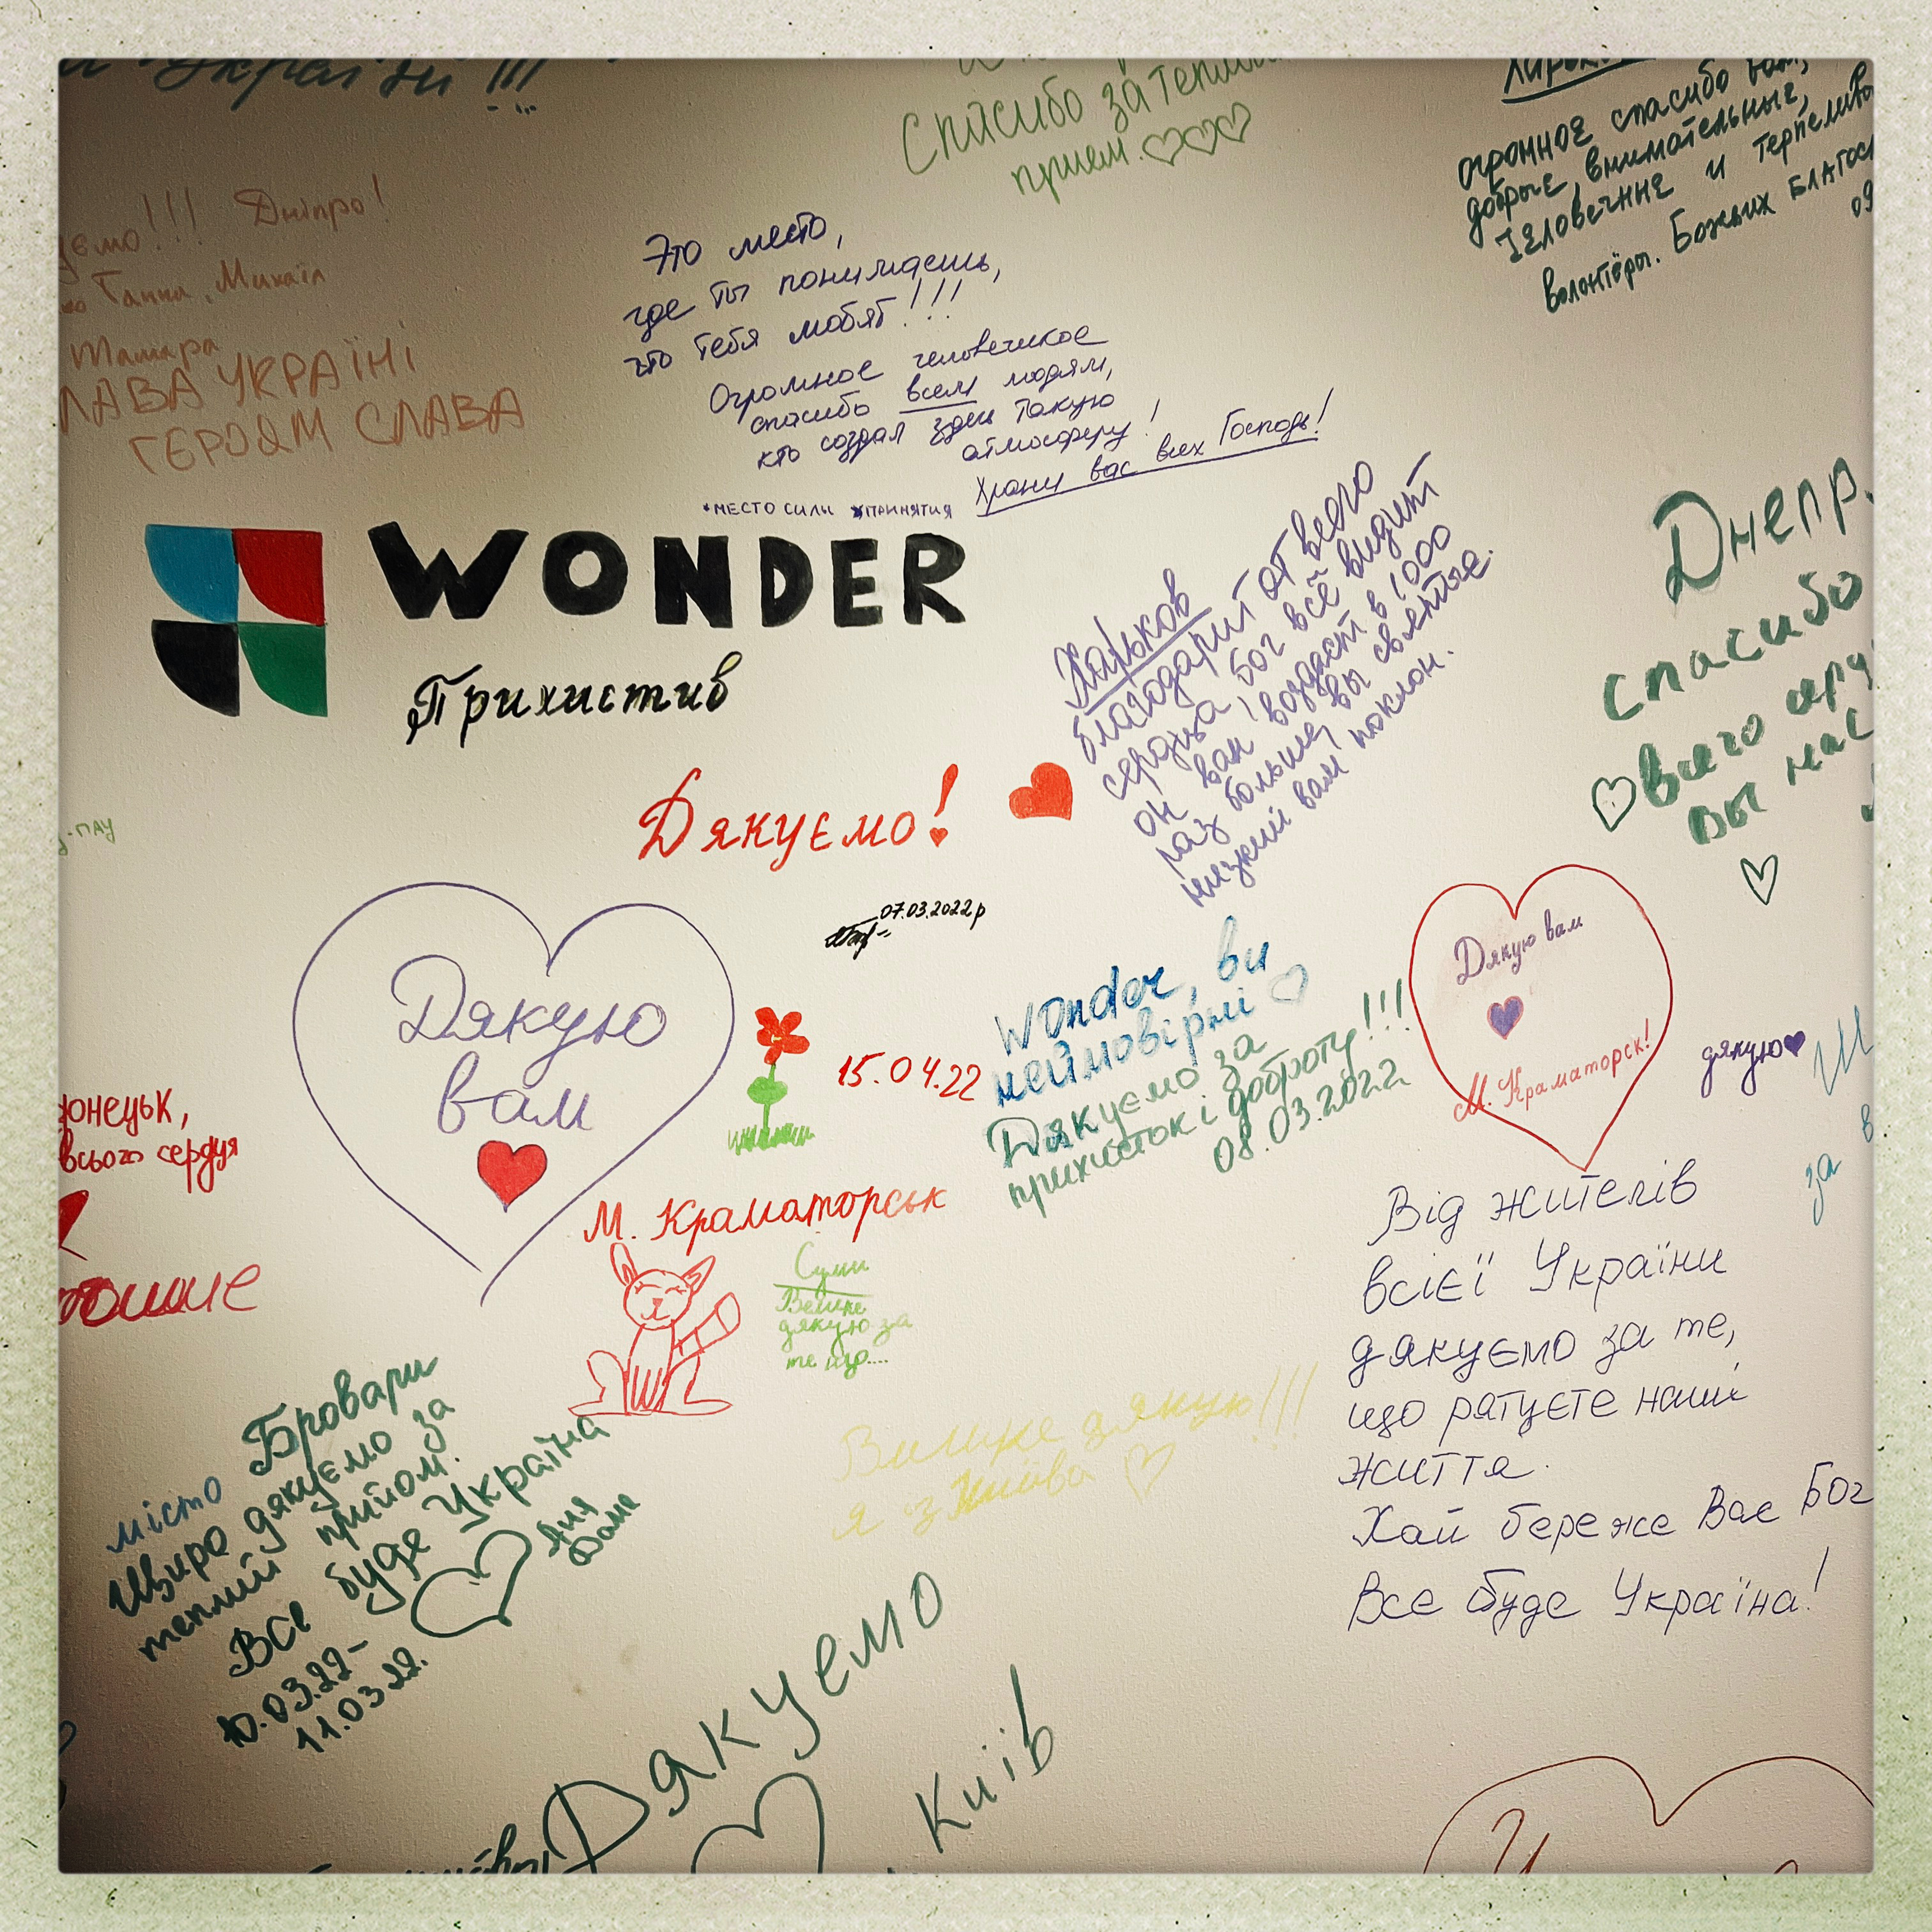 України!!!
Спасибо за теплый
прием.
огромное спасибо вам,
добрые, внимательные,
человечные и терпеливые
волонтёры. Божьих благос
09
Дніпро!
Ганна, Михаїл
Тамара
ЛАВА УКРАЇНІ
ГЕРОЯМ СЛАВА
Это место,
где ты понимаешь,
что тебя любят!!!
Огромное человеческое
спасибо всем людям,
кто создал здесь такую
атмосферу!
Храни вас всех Господь!
*МЕСТО СИЛЫ ПРИНЯТИЯ
WONDER
Прихистив
Дякуємо!
07.03.2022р
Харьков
благодарит от всего
сердца! Бог всё видит
он вам воздаст в 1000
раз больше, вы святые.
низкий вам поклон.
Днепр.
спасибо
всего серд
вы нас
Дякую
вам
15.04.22
Wonder, ви
неймовірні
Дякуємо за
прихисток і доброту!!!
08.03.2022
Дякую вам
М. Краматорск!
дякую
за
донецьк,
всього сердця
М. Краматорськ
Суми
Велике
дякую за
те що....
місто Бровари
Щиро дякуємо за
теплий прийом.
Все буде Україна
10.03.22-
11.03.22.
Аня
Велике дякую!!!
я з Києва
Від жителів
всієї України
дякуємо за те,
що рятуєте наші
життя.
Хай береже Вас Бог
Все буде Україна!
Дякуємо
Київ